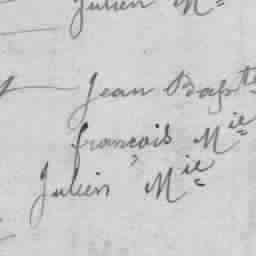 Julien M
Jean Bapte
françois Mie
Julien Mie